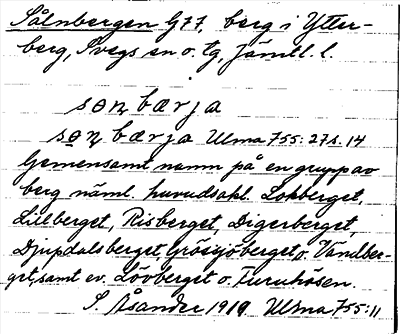 Sålnbergen G77, berg i Ytter-
berg, Svegs sn o. tg, Jämtl. l.
sɵn̥bærja
sɵn̥bærja Ulma 755:27 s. 14
Gemensamt namn på en grupp av
berg näml. huvudsakl. Lokberget,
Lillberget, Risberget, Digerberget,
Djupdalsberget, Grössjöberget o. Vändber-
get, samt ev. Lövberget o. Furuhåsen.
S. Åsander 1919 Ulma 755:11